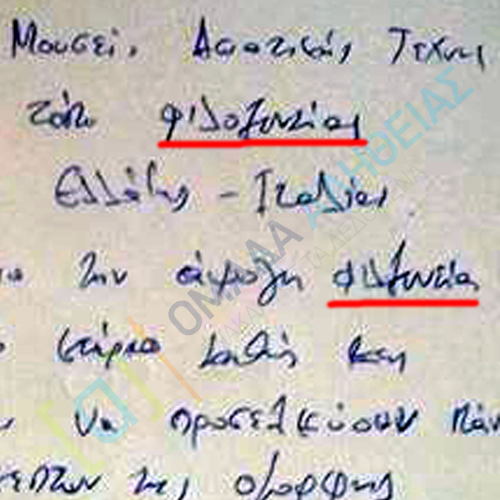 Μουσεί. Ασιατικής Τέχνης
τόπο φιλοξενίας
Ελλάδος - Ιταλίας
την άψογη φιλοξενία
κτήριο καθώς και
να προσελκύσουν
της όμορφης
ΟΜΑΔΑ ΑΛΗΘΕΙΑΣ